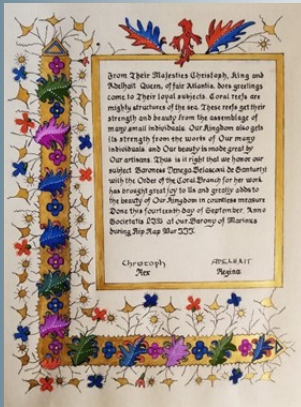 From Their Majesties Christoph, King and
Adelhait Queen, of fair Atlantia, does greetings
come to Their loyal subjects. Coral reefs are
mighty structures of the sea. These reefs get their
strength and beauty from the assemblage of
many small individuals. Our Kingdom also gets
its strength from the works of Our many
individuals and Our beauty is made great by
Our artisans. Thus is it right that we honor our
subject Baroness Denega Belasconi de Santurtzi
with the Order of the Coral Branch for her work
has brought great joy to Us and greatly adds to
the beauty of Our Kingdom in countless measure
Done this fourteenth day of September, Anno
Societatis at our Barony of Marinus
during Rip Rap War III.
Christoph ADELHAIT
Rex Regina